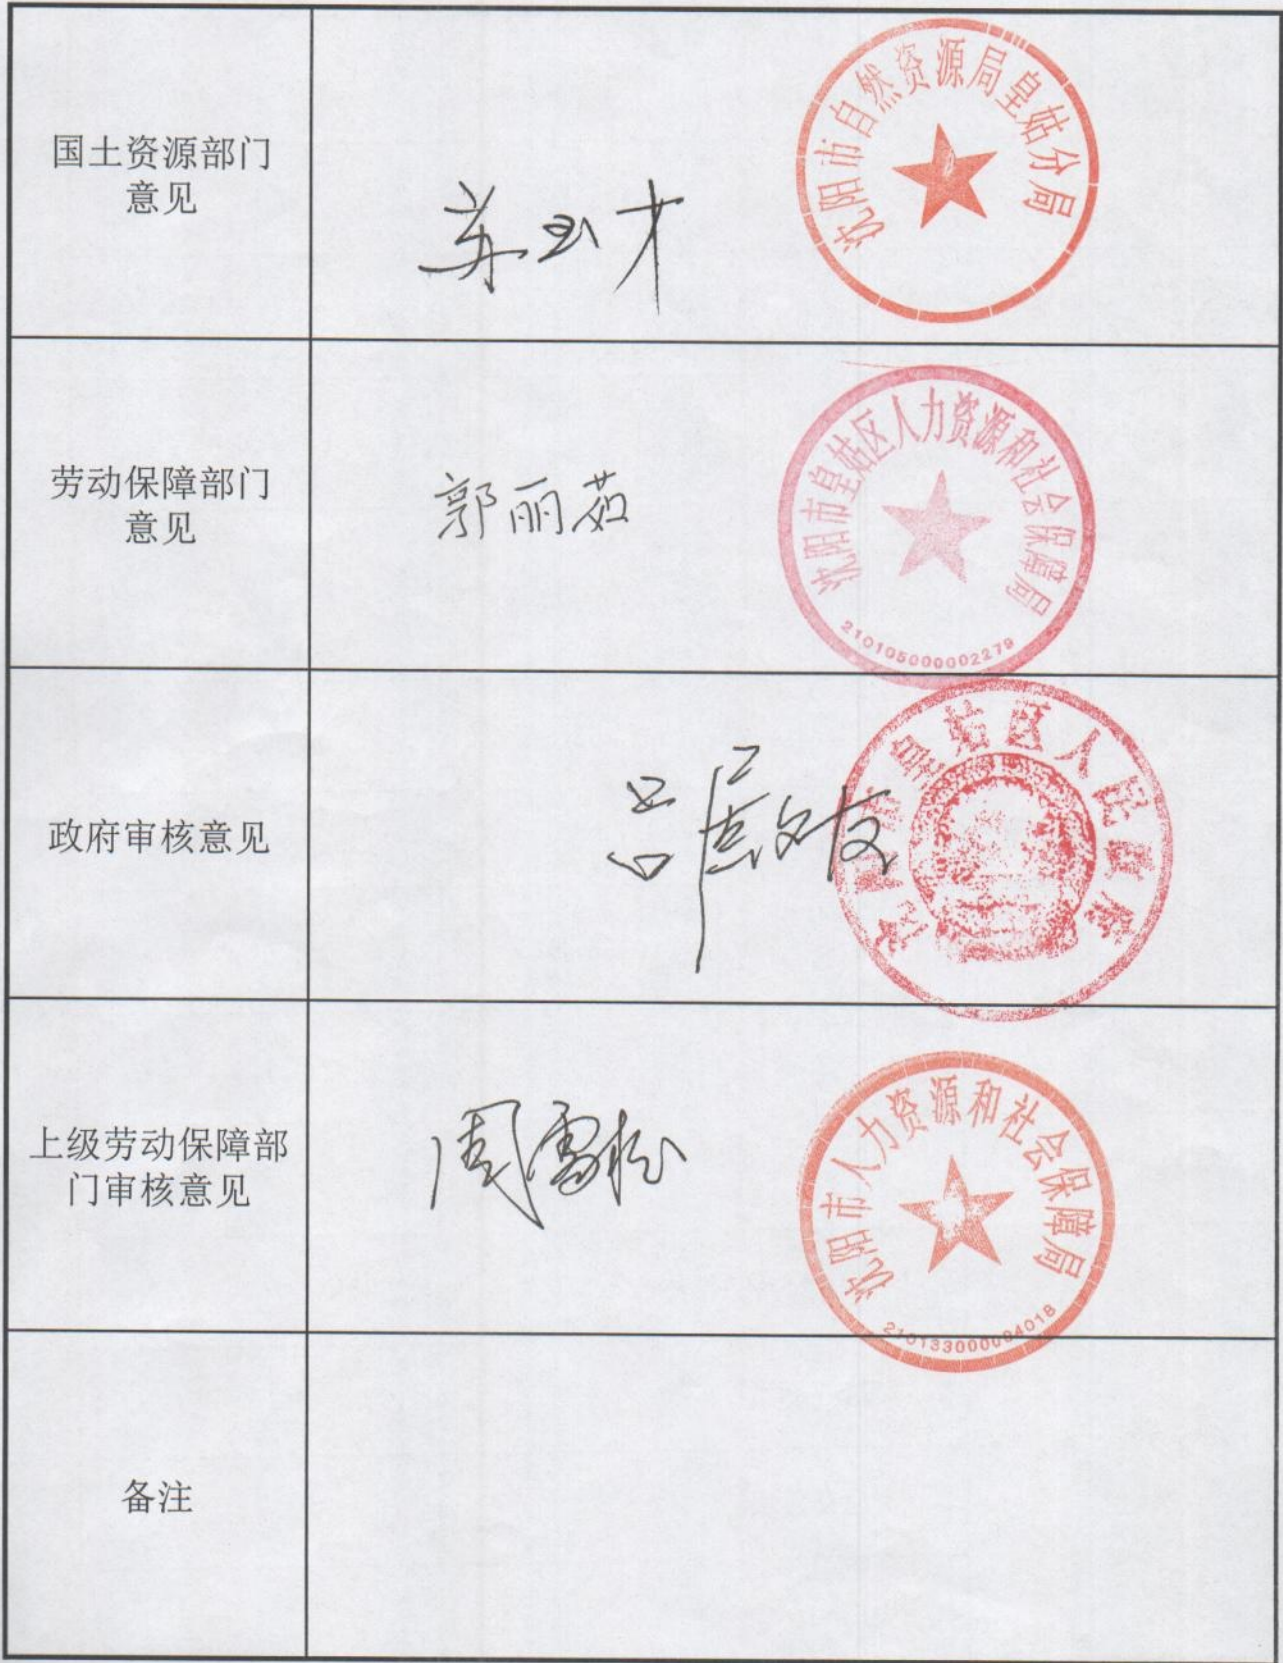 国土资源部门
意见
苏玉才
沈阳市自然资源局皇姑分局
劳动保障部门
意见
郭丽茹
沈阳市皇姑区人力资源和社会保障局
210105000002279
政府审核意见
吕展
沈阳市皇姑区人民政府
上级劳动保障部
门审核意见
周雪松
沈阳市人力资源和社会保障局
210133000004018
备注